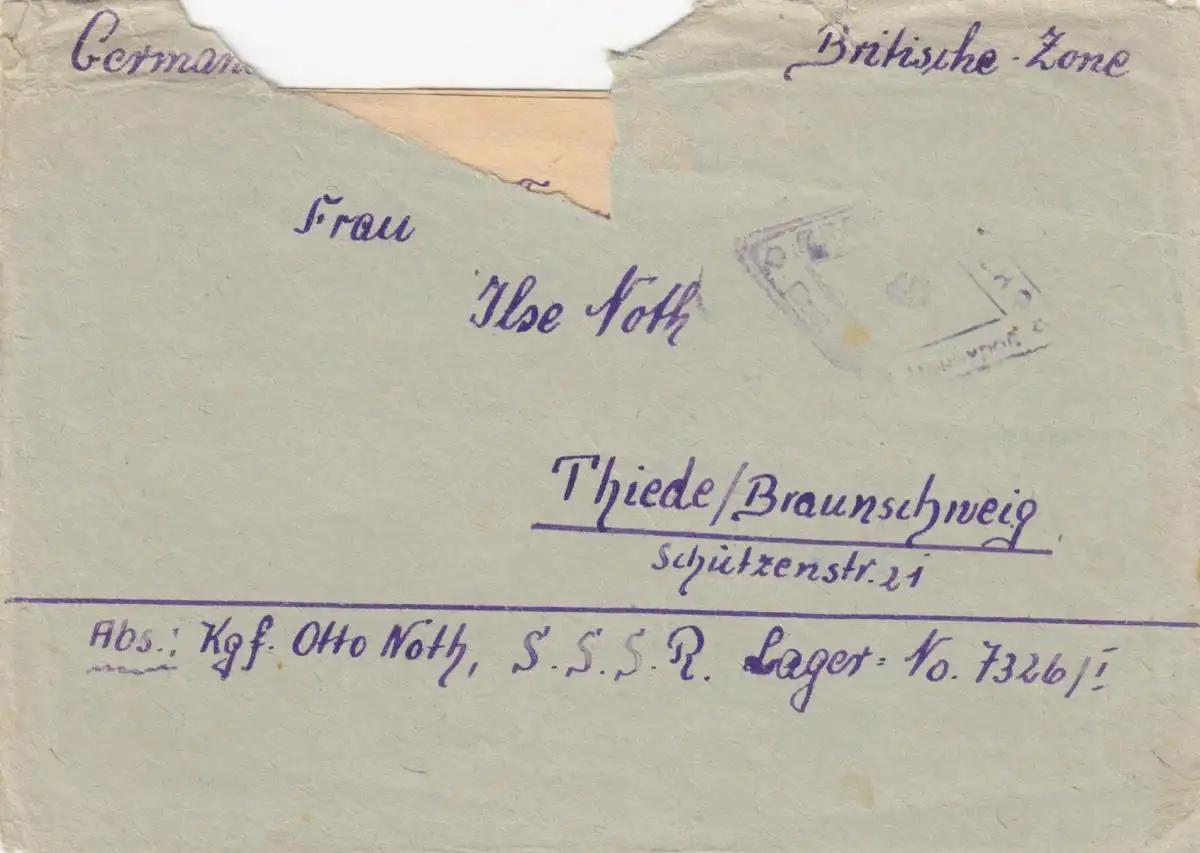 Britische-Zone
Frau
Ilse Noth
Thiede/Braunschweig
Schützenstr. 21
Abs.: Kgf. Otto Noth, S.S.S.R. Lager-No. 7326/I